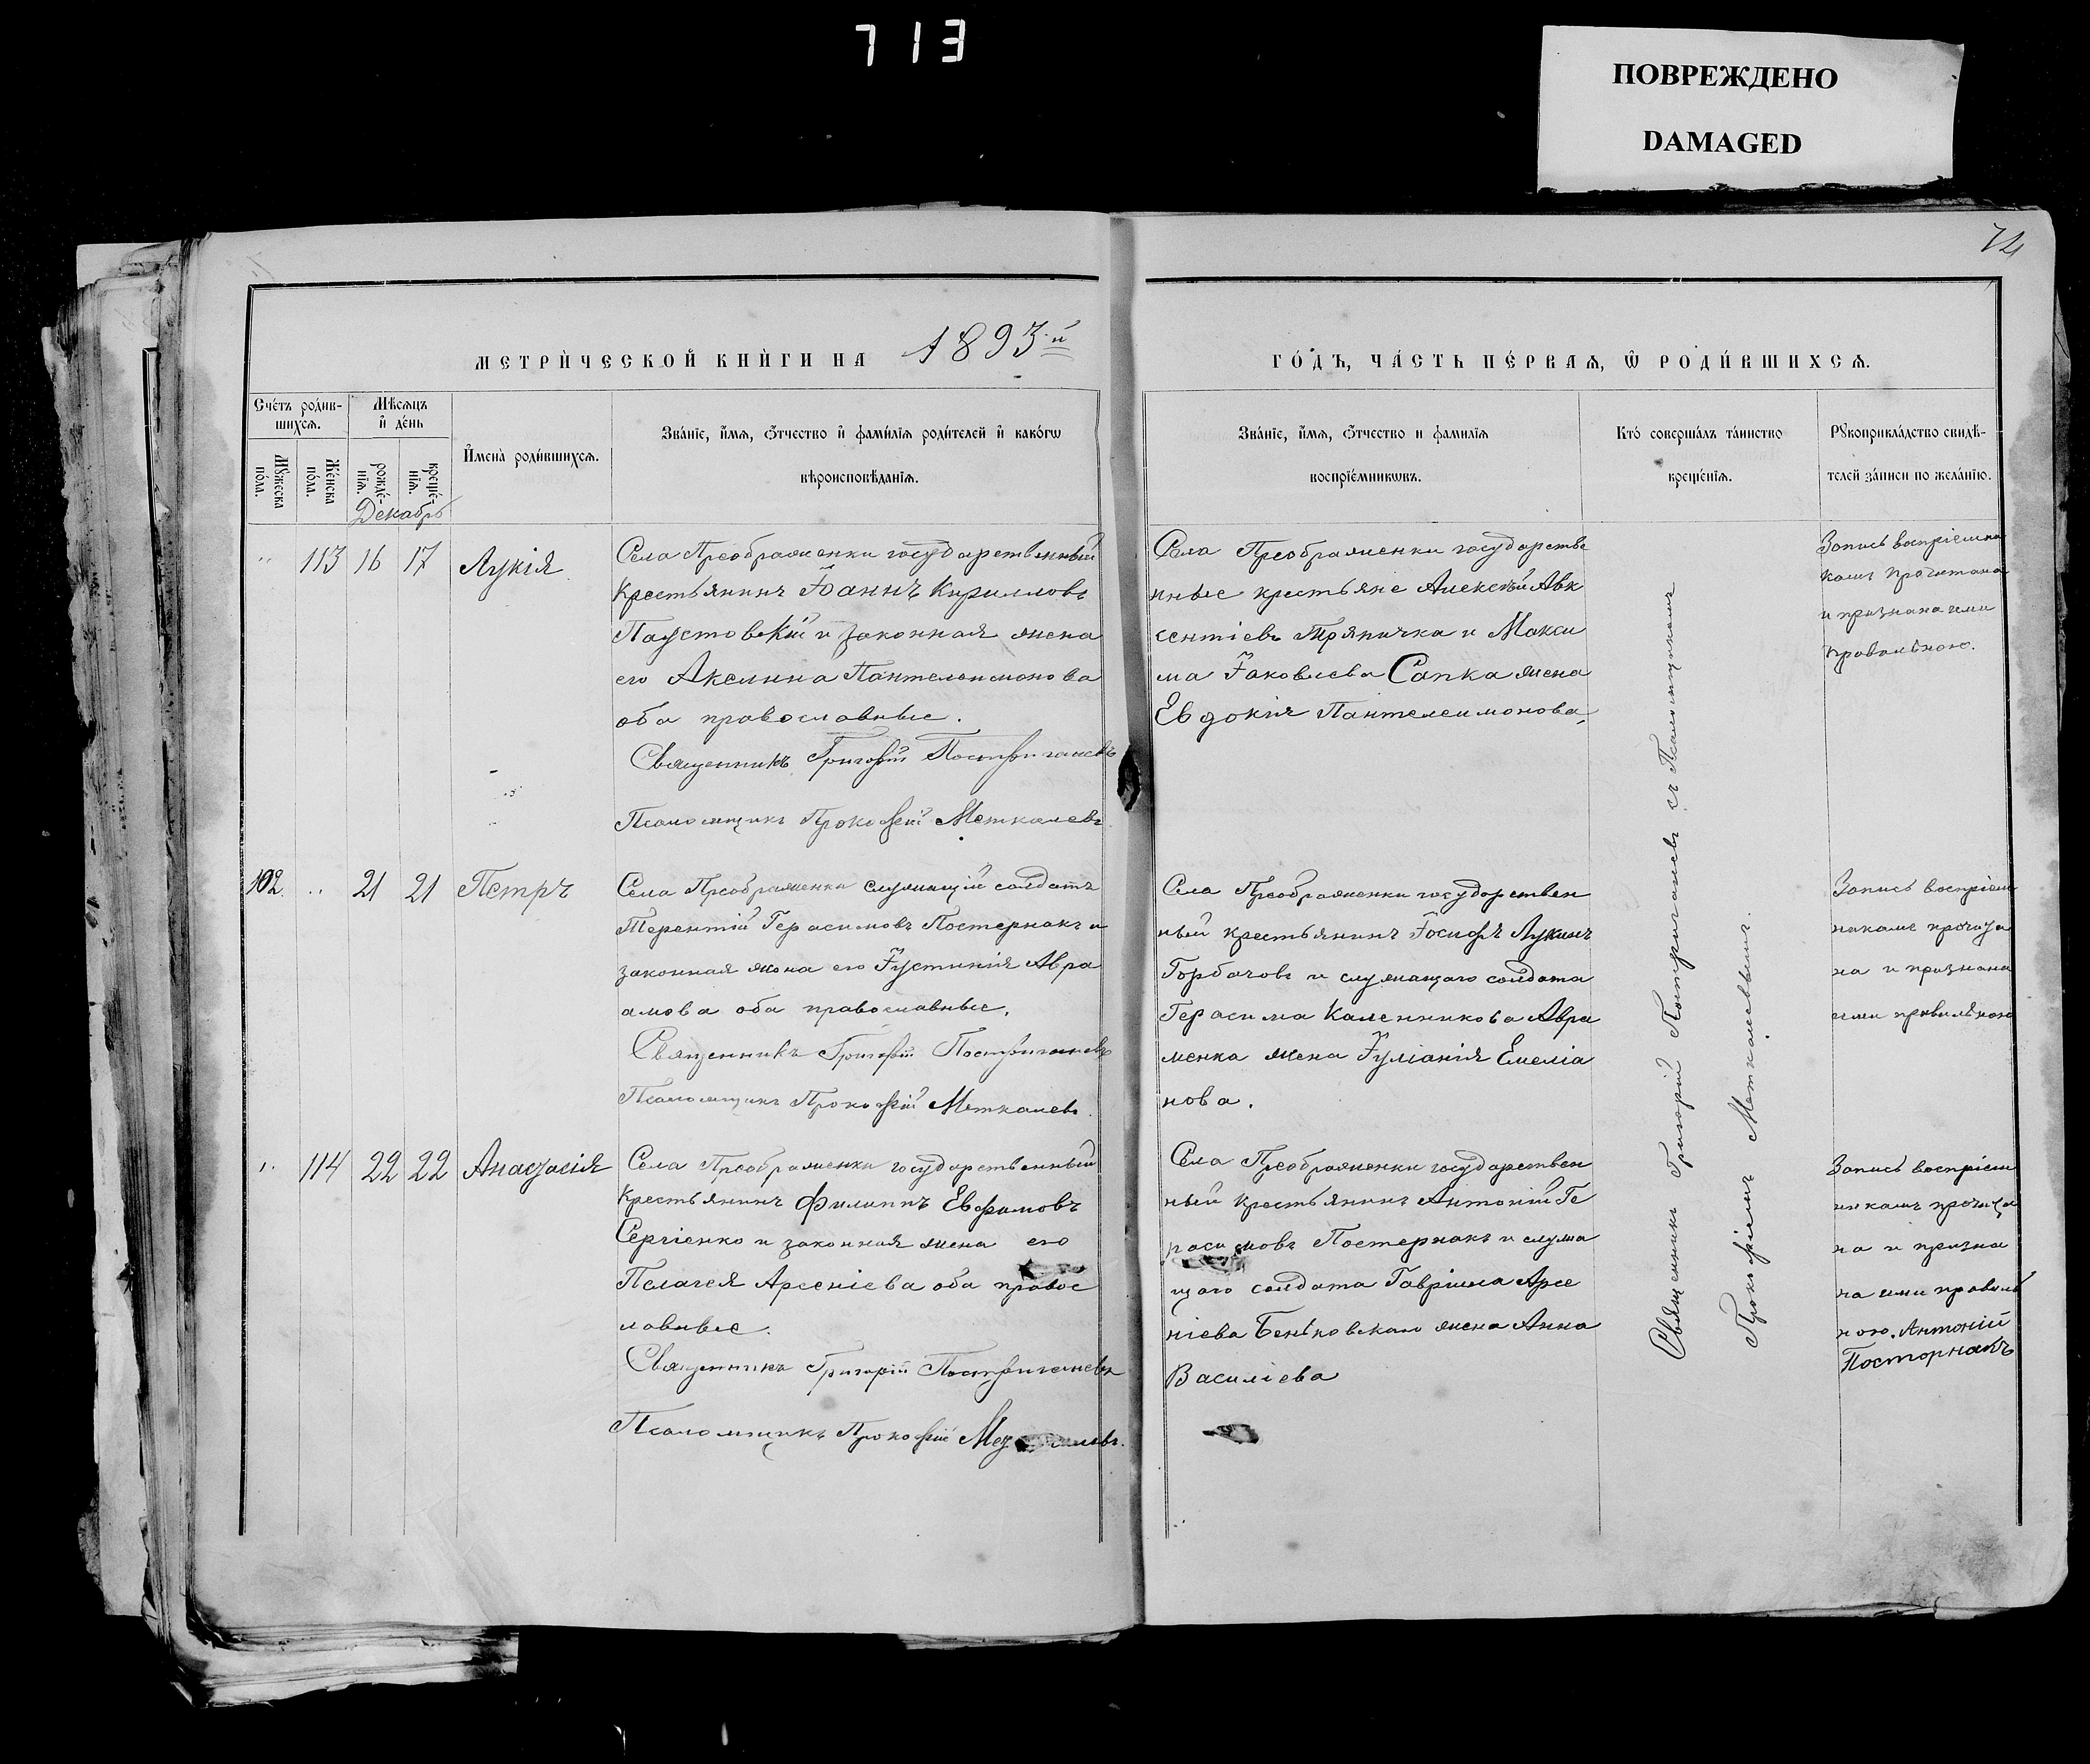 713
ПОВРЕЖДЕНО
DAMAGED
74
МЕТРИ́ЧЕСКОЙ КНИ́ГИ НА 1893.й
ГО́ДЪ, ЧА́СТЬ ПЕ́РВАЯ, Ѡ҆ РОДИ́ВШИХСЯ.
Сче́тъ роди́в-
шихся.
Му́жеска
по́ла.
Же́нска
по́ла.
Мѣ́сяцъ
и҆ де́нь
рожде́-
нія.
креще́-
нія.
Декабрь
И҆мена̀ роди́вшихся.
Зва́ніе, и҆́мя, ѻ҆́тчество и҆ фами́лія роди́телей и҆ како́гѡ
вѣроисповѣ́данія.
Зва́ніе, и҆́мя, ѻ҆́тчество и фами́лія
воспріе́мниковъ.
Кто́ соверша́лъ та́инство
креще́нія.
Рꙋкоприкла́дство свидѣ́-
телей за́писи по жела́нію.
" 113 16 17 Лукія
Села Преображенки государственный
крестьянинъ Іоаннъ Кирилловъ
Паустовскій и законная жена
его Акелина Пантелеимонова
оба православные.
Священникъ Григорій Постригачевъ
Псаломщикъ Прокофій Меткалевъ
Села Преображенки государстве
нные крестьяне Алексѣй Авк
сентіевъ Тряпичка и Макси
ма Іаковлева Сапка жена
Евдокія Пантелеимонова.
Запись воспріемни
камъ прочитана
и признана ими
правильною.
102. " 21 21 Петръ
Села Преображенки служащій солдатъ
Терентій Герасимовъ Постернакъ и
законная жена его Іустинія Авра
амова оба православные.
Священникъ Григорій Постригачевъ
Псаломщикъ Прокофій Меткалевъ.
Села Преображенки государствен
ный крестьянинъ Іосифъ Лукинъ
Горбачовъ и служащаго солдата
Герасима Каленникова Авра
менка жена Іуліанія Емеліа
нова.
Запись воспріем
никаме прочита
на и признана
ими правильною
" 114 22 22 Анастасія
Села Преображенки государственный
крестьянинъ Филиппъ Евфимовъ
Сергіенко и законная жена его
Пелагея Арсеніева оба правос
лавные.
Священникъ Григорій Постригачевъ
Псаломщикъ Прокофій
Села Преображенки государствен
ный крестьянинъ Антоній Ге
расимовъ Постернакъ и служа
щаго солдата Гавріила Арсе
ніева Беньковскаго жена Анна
Василіева
Запись воспріем
никамъ прочита
на и призна
на ими правиль
ною. Антоній
Посторнакъ
Священникъ Григорій Постригачевъ съ Псаломщикомъ
Прокофіемъ Меткалевымъ.